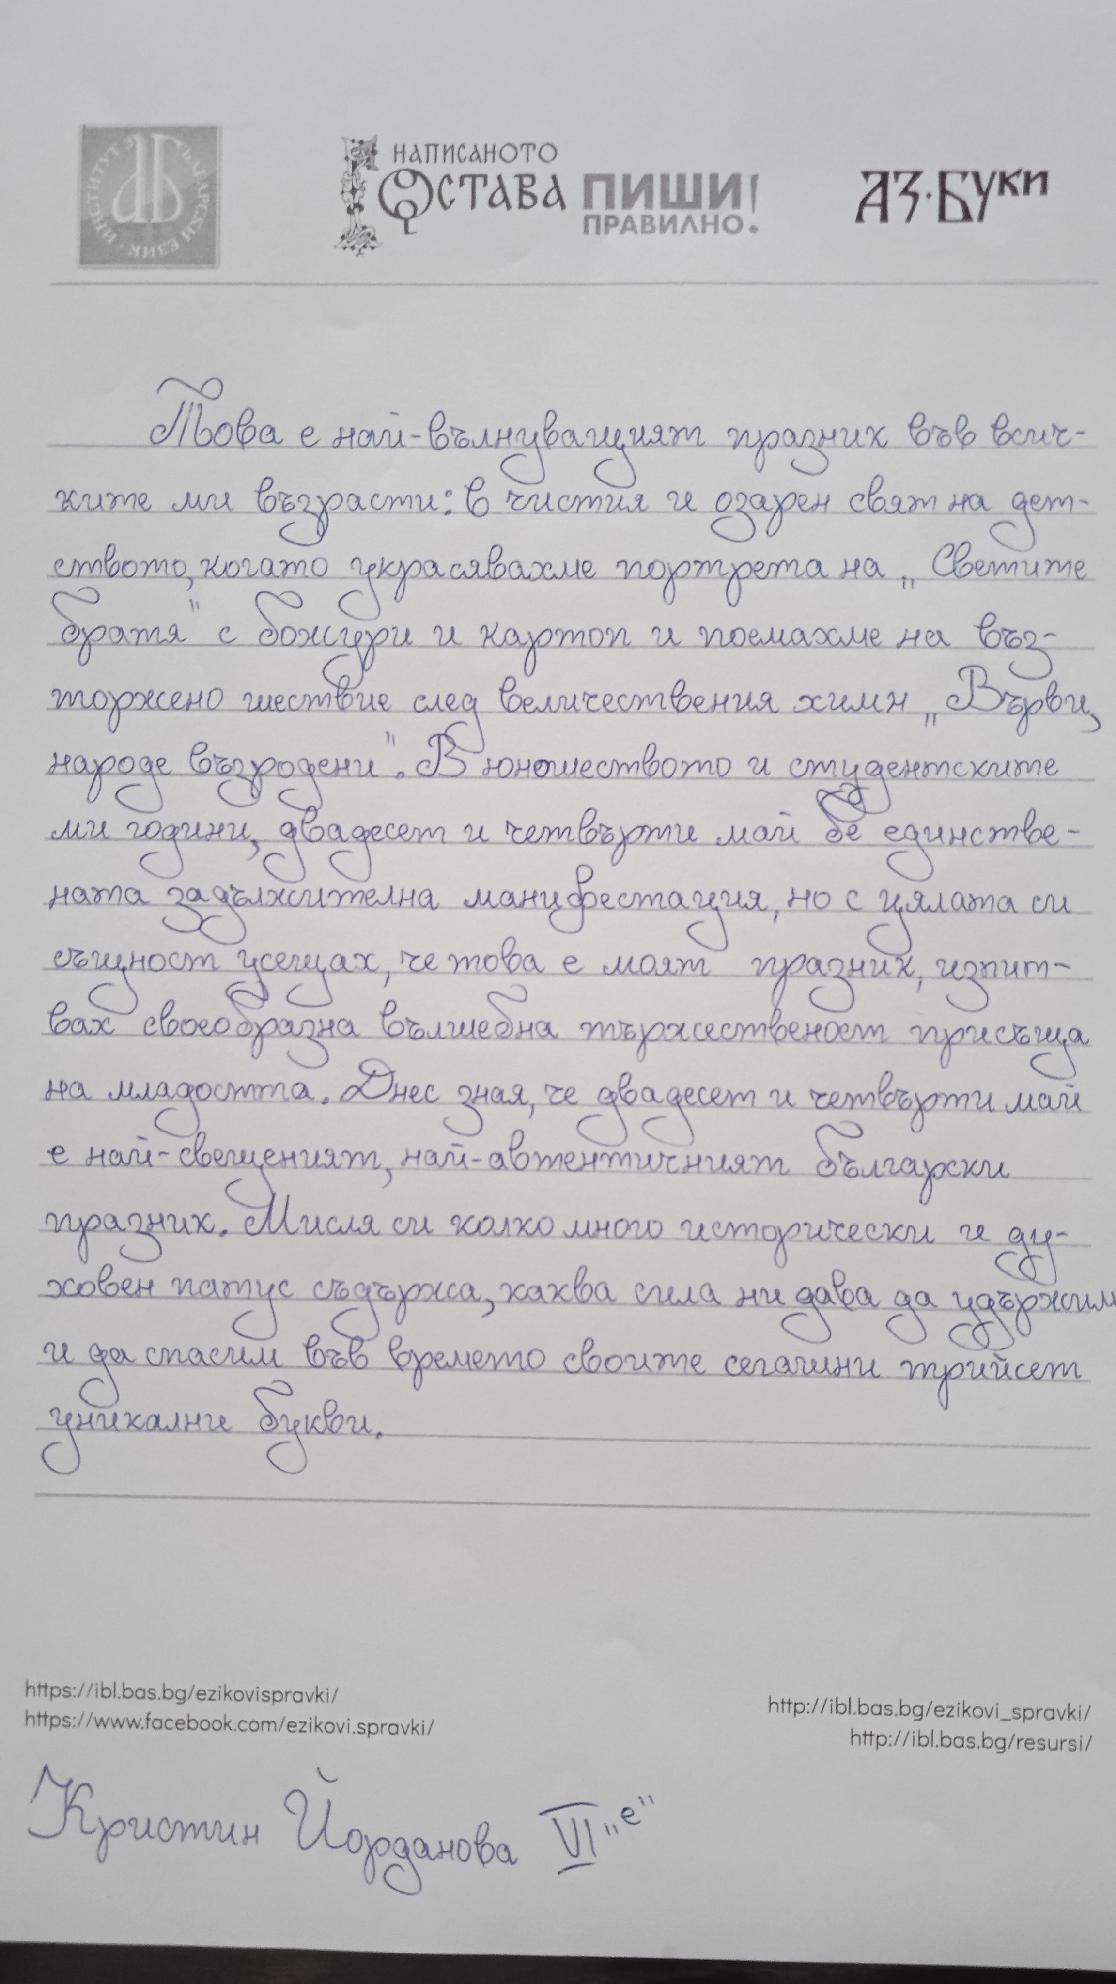 ИНСТИТУТ ЗА БЪЛГАРСКИ ЕЗИК
НАПИСАНОТО
ОСТАВА
ПИШИ
ПРАВИЛНО!
АЗ·БУКИ
Това е най-вълнуващият празник във всич-
ките ми възрасти: в чистия и озарен свят на дет-
ството, когато украсявахме портрета на „Светите
братя" с божури и картоп и поемахме на въз-
торжено шествие след величествения химн „Върви,
народе възродени". В юношеството и студентските
ми години, двадесет и четвърти май бе единстве-
ната задължителна манифестация, но с цялата си
същност усещах, че това е моят празник, изпит-
вах своеобразна вълшебна тържественост присъща
на младостта. Днес зная, че двадесет и четвърти май
е най-свещеният, най-автентичният български
празник. Мисля си колко много исторически и ду-
ховен патус съдържа, каква сила ни дава да удържим
и да спасим във времето своите сегашни трийсет
уникални букви.
https://ibl.bas.bg/ezikovispravki/
https://www.facebook.com/ezikovi.spravki/
http://ibl.bas.bg/ezikovi_spravki/
http://ibl.bas.bg/resursi/
Кристин Йорданова VI „е"